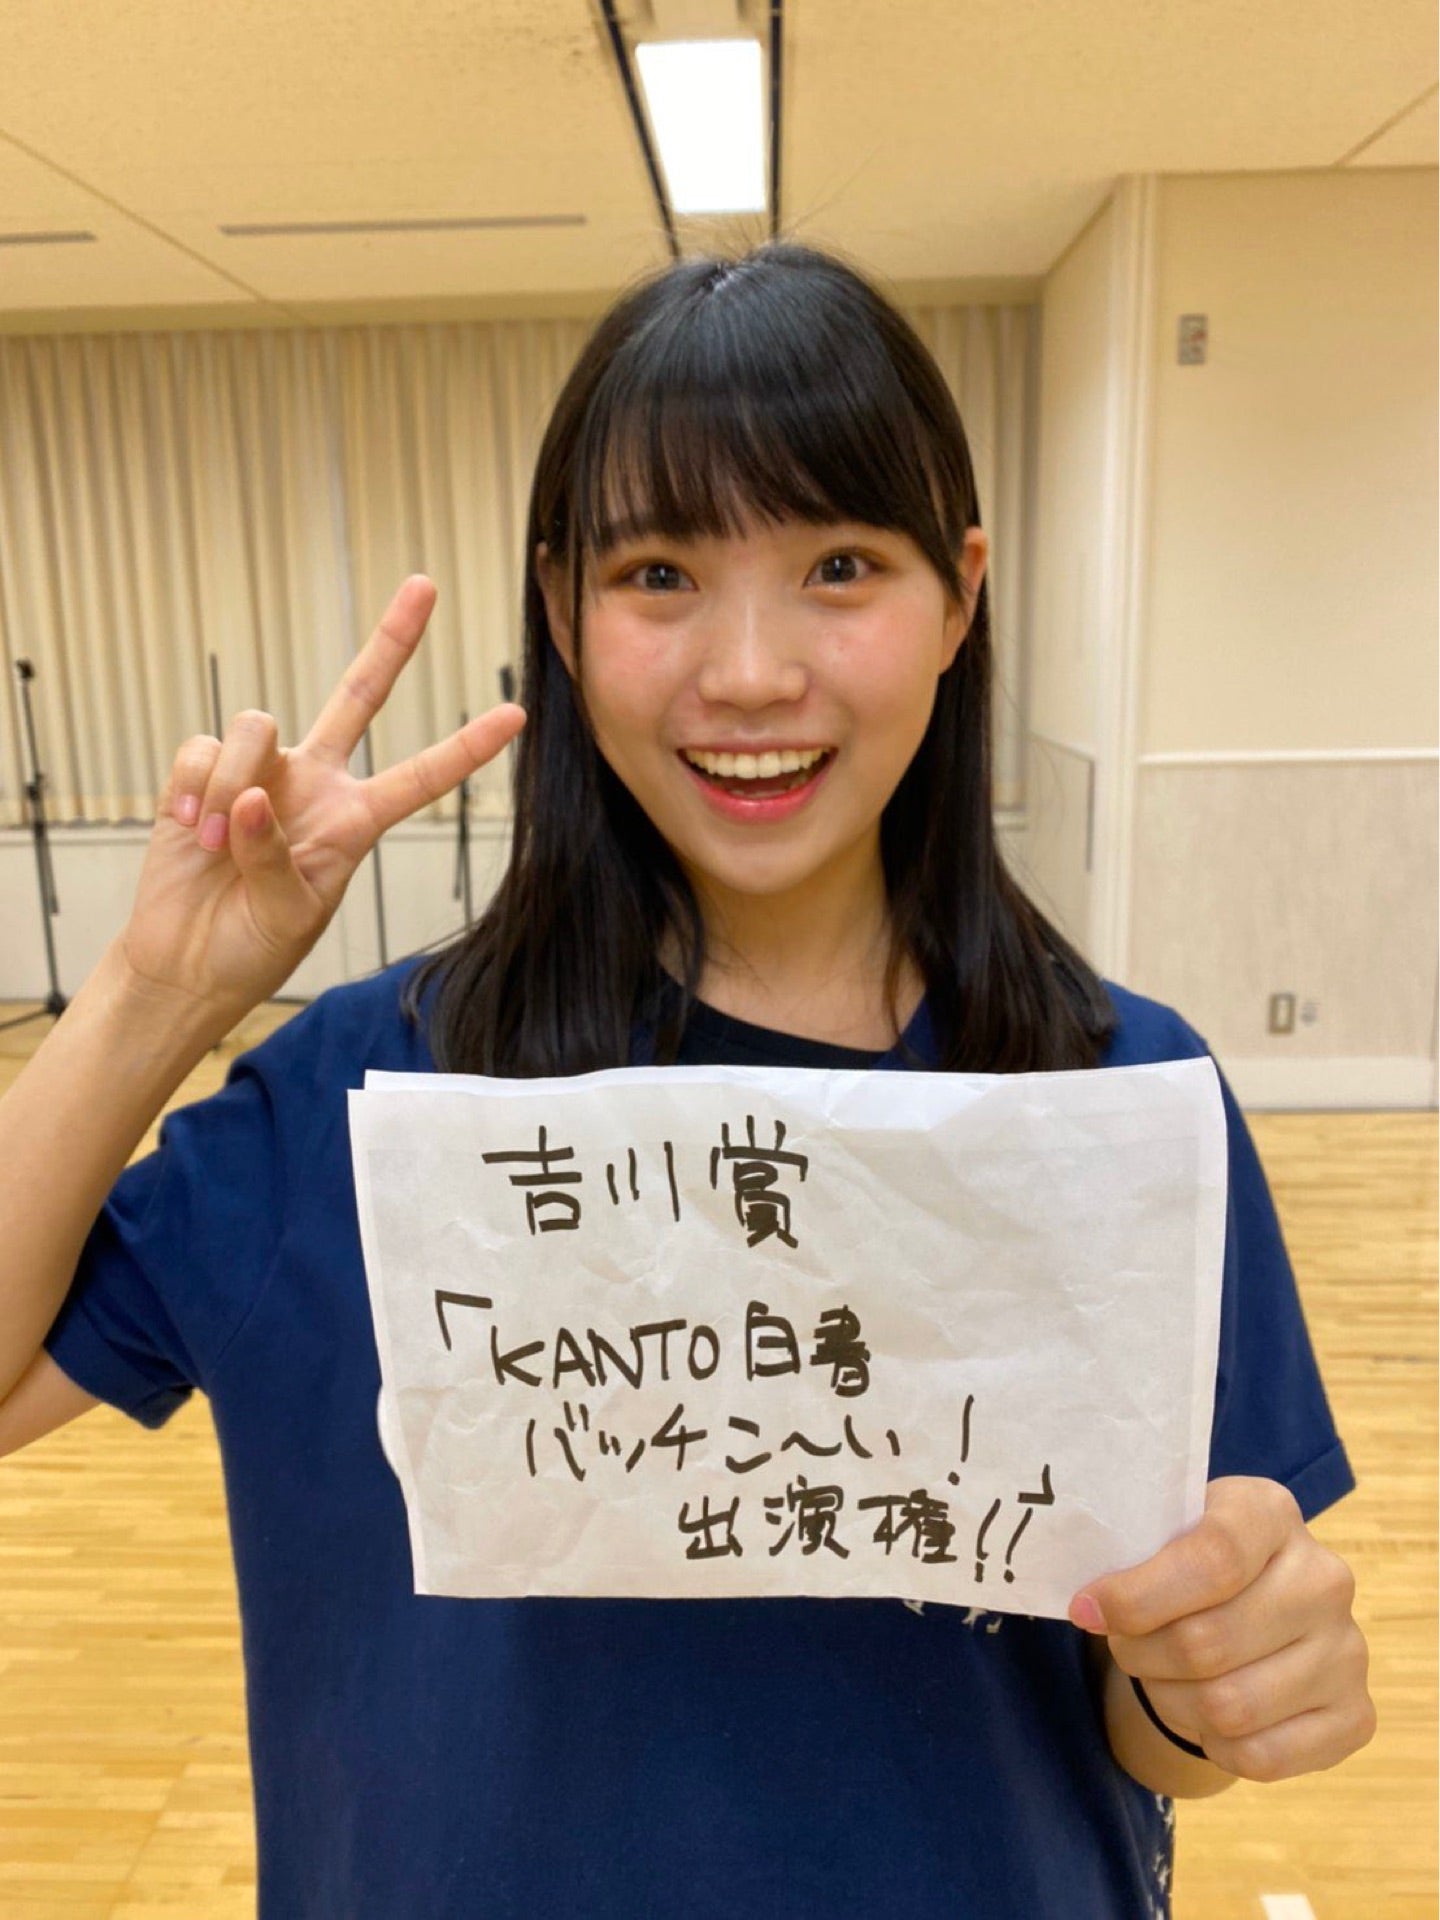 吉川賞
「KANTO白書
バッチこ〜い!
出演権!!」